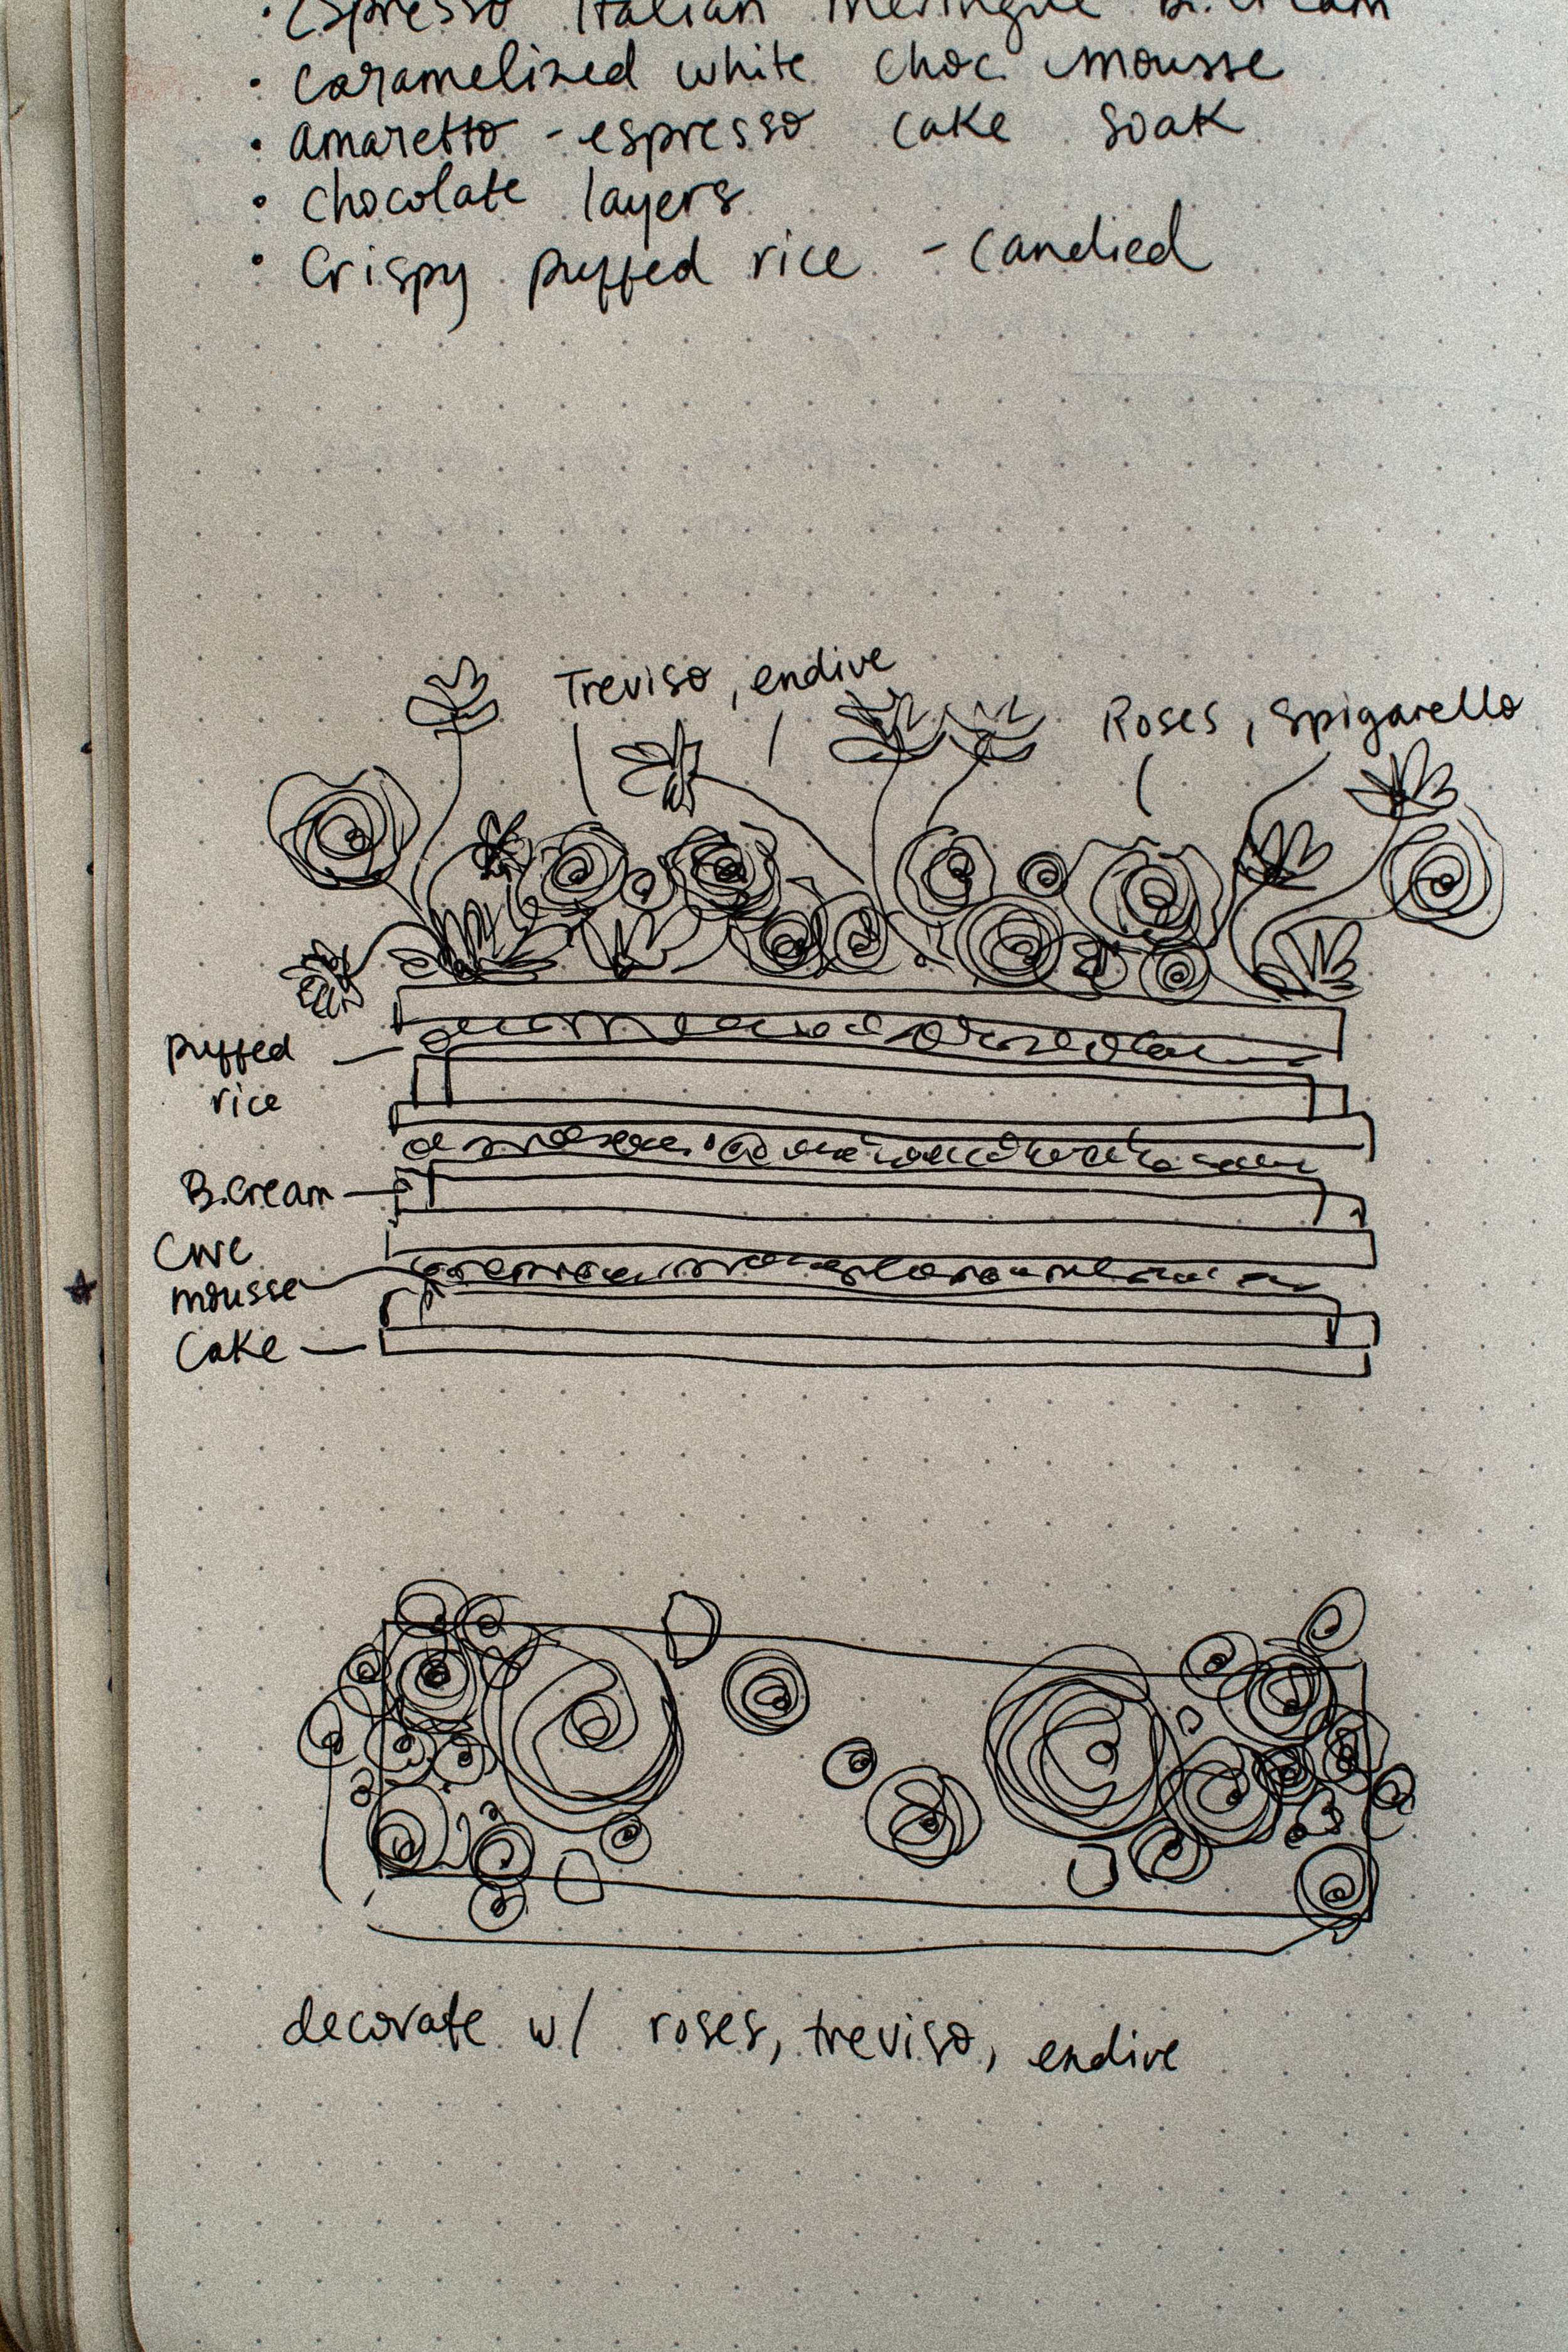 · Espresso Italian meringue B.cream
· Caramelized white choc mousse
· Amaretto - espresso cake soak
· Chocolate layers
· Crispy puffed rice - candied
Treviso, endive
Roses, spigarello
puffed
rice
B.cream
CWC
mousse
Cake
decorate w/ roses, treviso, endive